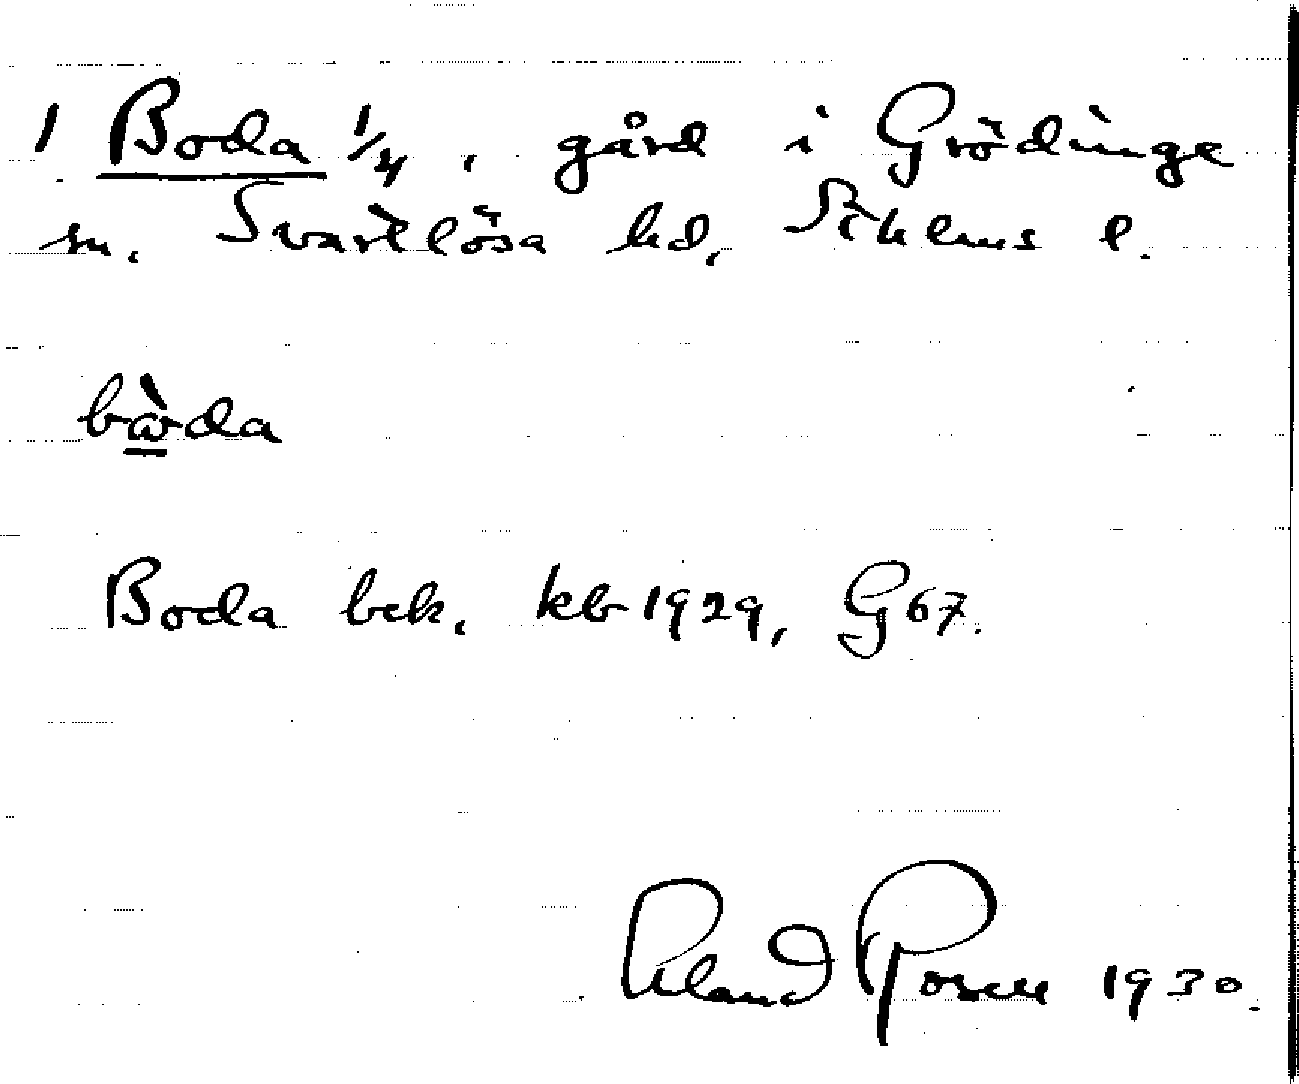 1 Boda 1/4, gård i Grödinge
sn. Svartlösa hd, Sthlms l.
bὼda
Boda bek. kb 1929, G67.
Rosen 1930.